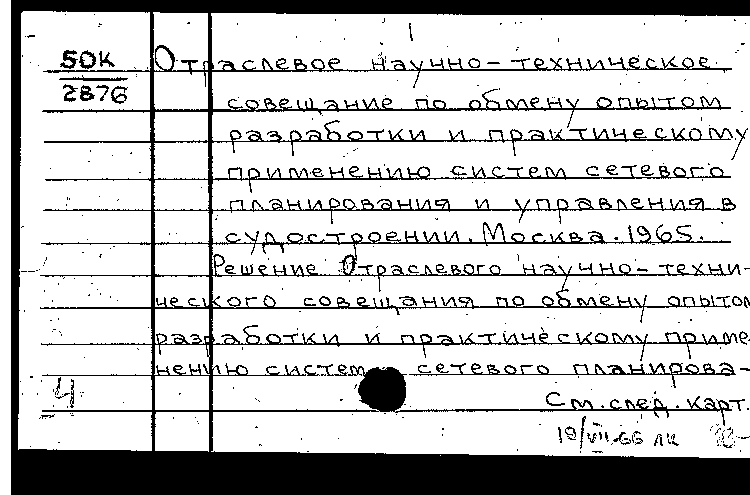 50К Отраслевое научно-техническое
2876
совещание по обмену опытом
разработки и практическому
применению систем сетевого
планирования и управления в
судостроении. Москва. 1965.
Решение Отраслевого научно-техни-
ческого совещания по обмену опытом
разработки и практическому приме
нению систем сетевого планирова-
4 См. след. карт.
19/VII-66 лк